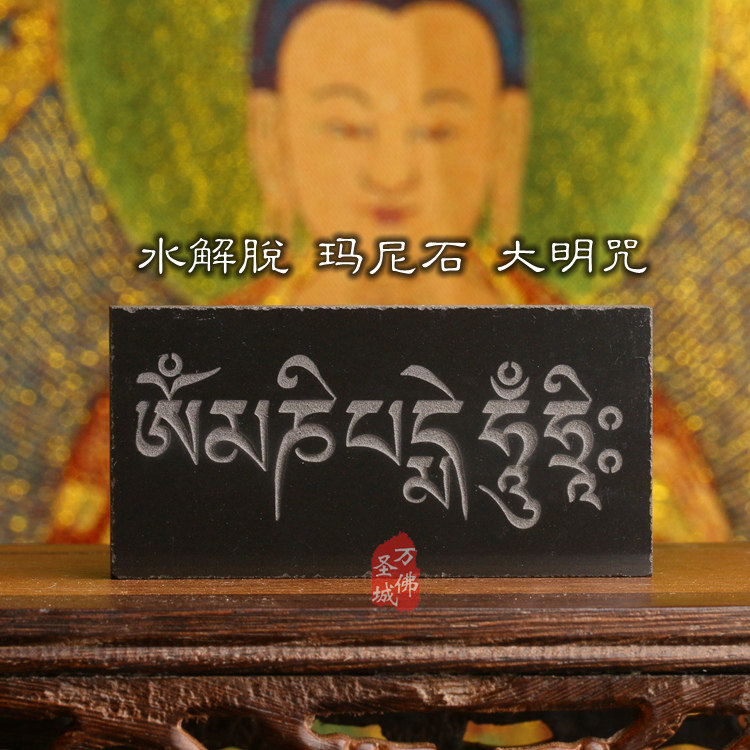 水解脱 玛尼石 大明咒
ༀམཎིཔདྨེཧཱུྃཧྲཱིཿ
万佛
圣城